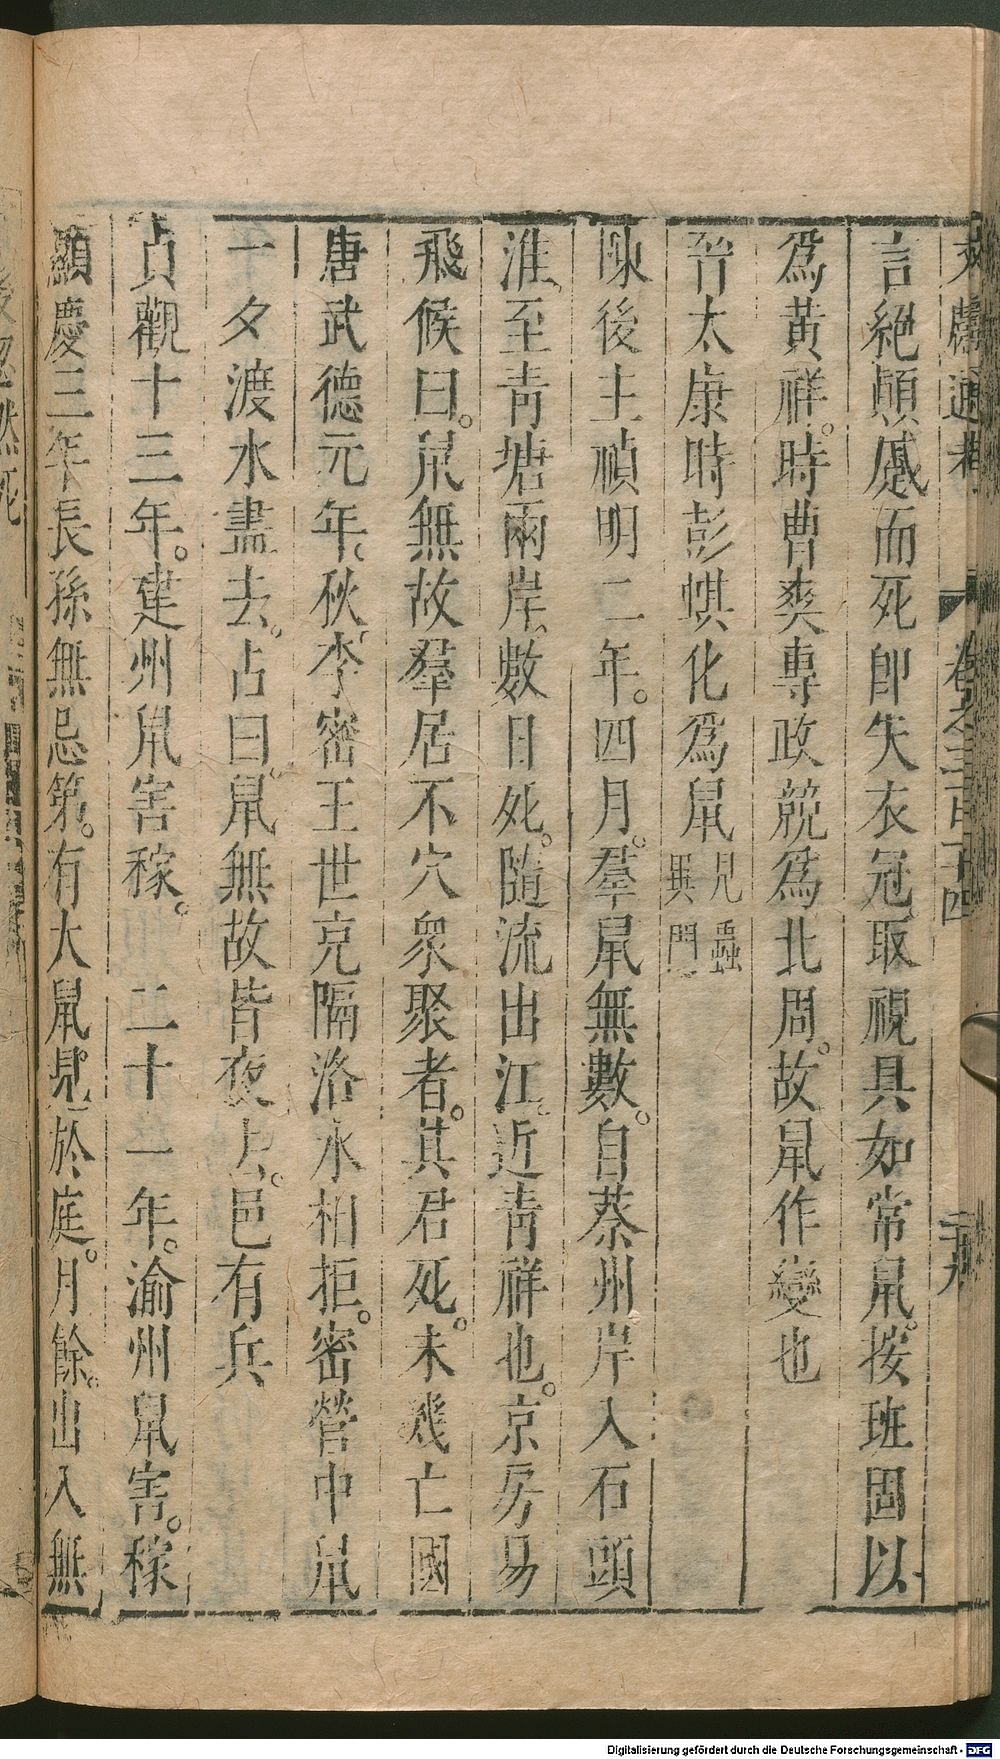 文獻通考 卷之三百十四 二十九
言絕顚蹷而死卽失衣冠取視具如常鼠。按班固以
爲黃祥。時曹爽專政兢爲北周。故鼠作變也
晉太康時彭蜞化爲鼠見蟲異門
陳後主禎明二年。四月。羣鼠無數。自蔡州岸入石頭
淮、至青塘兩岸、數日死。隨流出江。近青祥也。京房易
飛候曰。鼠無故羣居不穴衆聚者。其君死。未幾亡國
唐武德元年。秋李密王世充隔洛水相拒。密營中鼠
一夕渡水盡去。占曰鼠無故皆夜去。邑有兵
貞觀十三年。建州鼠害稼。二十一年。渝州鼠害。稼
顯慶三年長孫無忌第。有大鼠見於庭。月餘。出入無
Digitalisierung gefördert durch die Deutsche Forschungsgemeinschaft - DFG